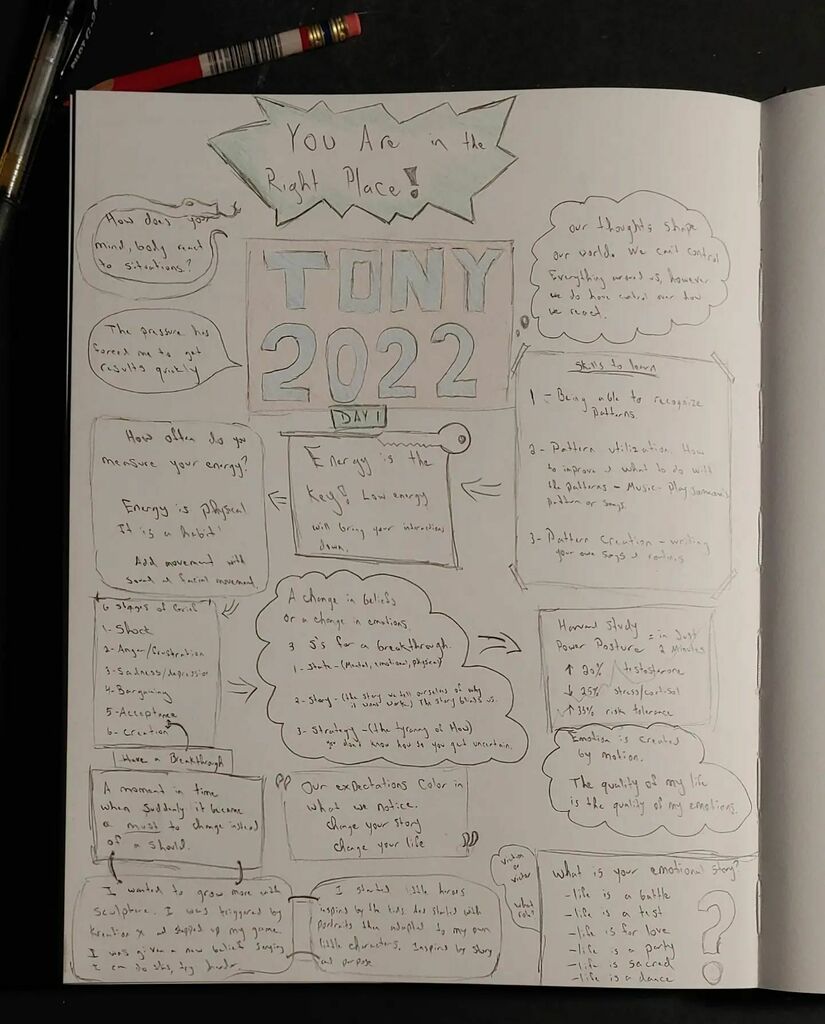 You Are in the
Right Place!
How does your
mind, body react
to situations?
TONY
2022
DAY 1
our thoughts shape
our world. We can't control
Everything around us, however
we do have control over how
we react.
The pressure has
forced me to get
results quickly
Skills to learn
1 - Being able to recognize
patterns.
2 - Pattern utilization. How
to improve & what to do with
the patterns - Music - Play someone's
pattern or songs.
3 - Pattern Creation - writing
your own songs & routines
Energy is the
Key! Low energy
will bring your interactions
down.
How often do you
measure your energy?
Energy is physical
It is a habit!
Add movement with
sound & facial movement.
6 stages of Grief
1 - Shock
2 - Anger/frustration
3 - Sadness/depression
4 - Bargaining
5 - Acceptance
6 - Creation
A change in beliefs
or a change in emotions.
3 S's for a breakthrough.
1 - State - (Mental, emotional, physical)
2 - Story - (the story we tell ourselves of why
it won't work) The story blinds us.
3 - Strategy - (the tyranny of How)
don't know how so you get uncertain.
Harvard Study
Power Posture = in Just
2 Minutes
↑ 20% testosterone
↓ 25% stress/cortisol
↑ 33% risk tolerance
Emotion is created
by motion.
The quality of my life
is the quality of my emotions.
Have a Breakthrough
A moment in time
when suddenly it became
a must to change instead
of a should.
" Our expectations Color in
what we notice.
change your story
change your life "
victim or
victor
what
role?
What is your emotional story?
- life is a battle
- life is a test
- life is for love
- life is a party
- life is sacred
- life is a dance
?
I wanted to grow more with
sculpture. I was triggered by
and stepped up my game.
I was given a new belief saying
I can do this, try harder.
I started little heroes
inspired by the kids. Also started with
portraits then adapted to my own
little characters. Inspired by story
and purpose